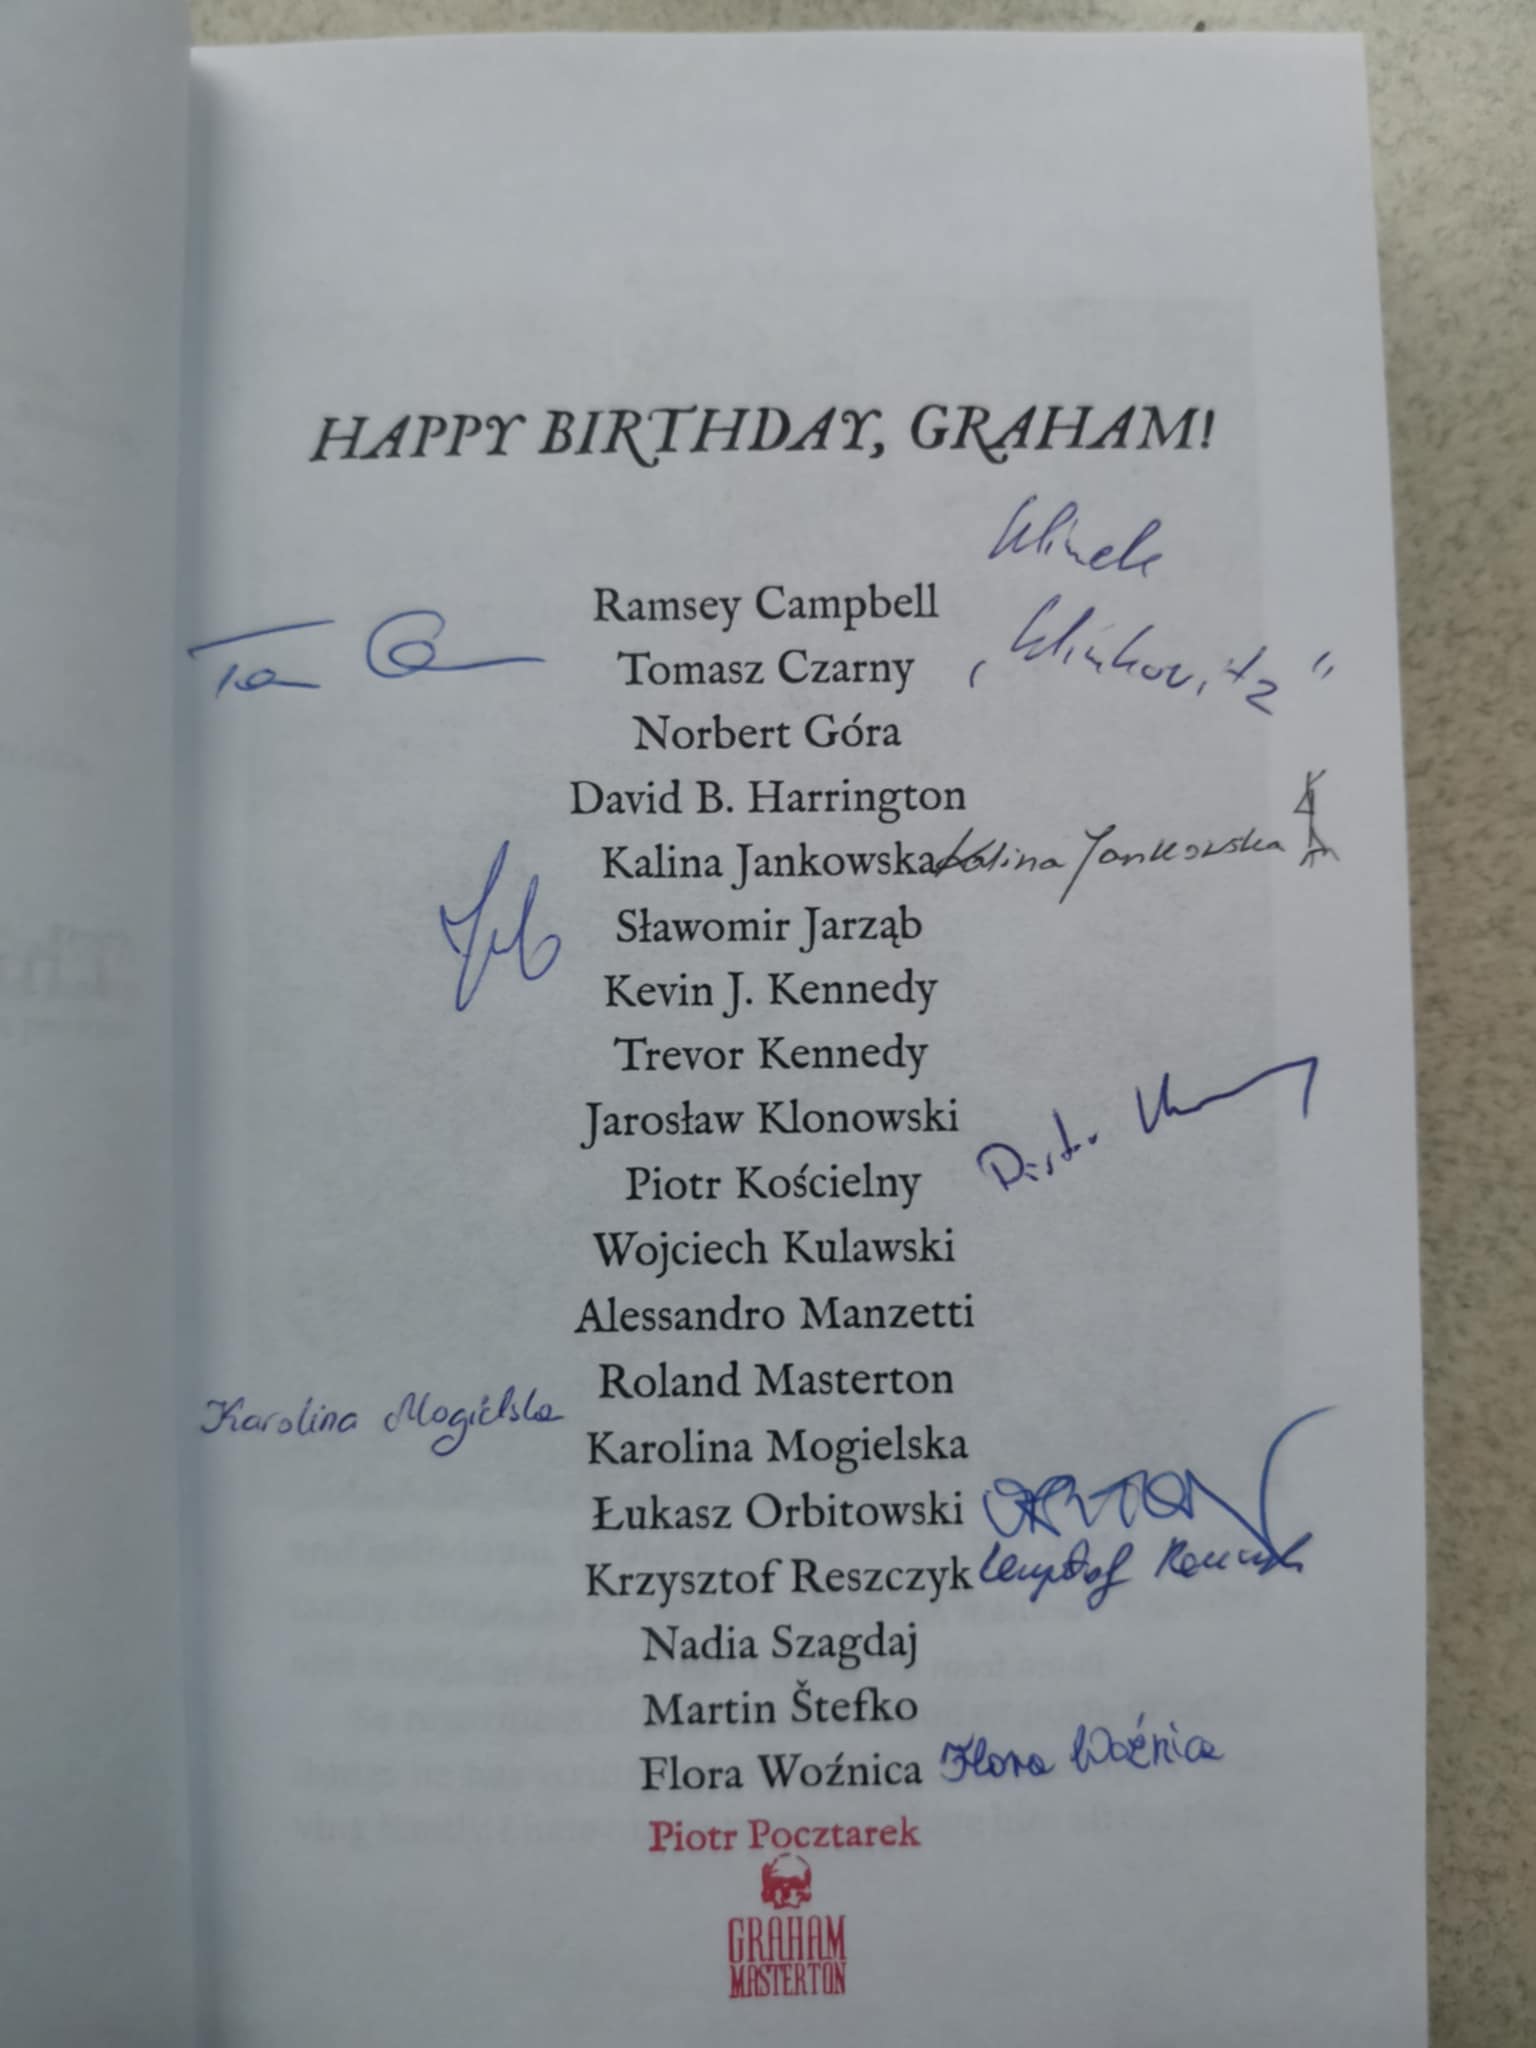 HAPPY BIRTHDAY, GRAHAM!
Ramsey Campbell
Tomasz Czarny
Norbert Góra
David B. Harrington
Kalina Jankowska Kalina Jankowska
Sławomir Jarząb
Kevin J. Kennedy
Trevor Kennedy
Jarosław Klonowski
Piotr Kościelny
Wojciech Kulawski
Alessandro Manzetti
Roland Masterton
Karolina Mogielska
Karolina Mogielska
Łukasz Orbitowski
Krzysztof Reszczyk
Nadia Szagdaj
Martin Štefko
Flora Woźnica Flora Woźnica
Piotr Pocztarek
GRAHAM
MASTERTON